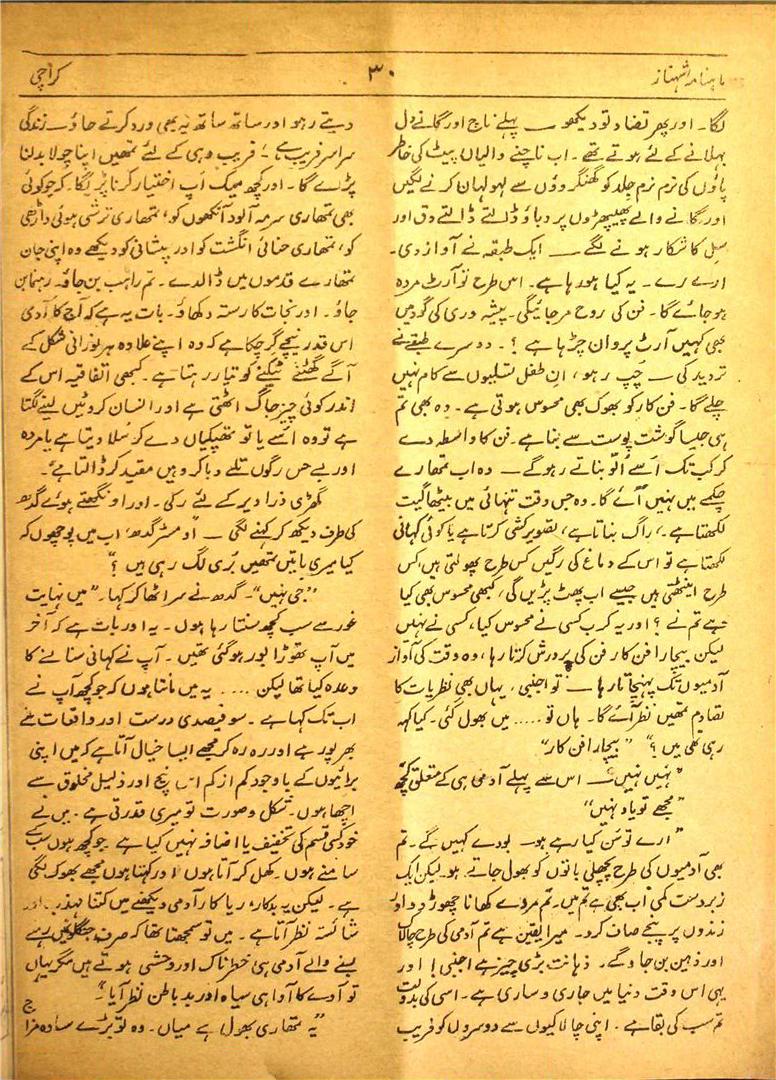 ماہنامہ شہناز
۳۰
کراچی
لگا۔ اور پھر تضاد تو دیکھو ــ پہلے ناچ اور گانے دل
بہلانے کے لئے ہوتے تھے۔ اب ناچنے والیاں پیٹ کی خاطر
پاؤں کی نرم نرم جلد کو گھنگروؤں سے لہولہان کرنے لگیں
اور گانے والے پھیپھڑوں پر دباؤ ڈالتے ڈالتے دق اور
سل کا شکار ہونے لگے ــ ایک طبقہ نے آواز دی۔
ارے رے۔ یہ کیا ہو رہا ہے۔ اس طرح تو آرٹ مردہ
ہو جائے گا۔ فن کی روح مر جائیگی۔ پیشہ وری کی گود میں
بھی کہیں آرٹ پروان چڑھا ہے ؟۔ دوسرے طبقے نے
تردید کی ــ چپ رہو ، ان طفل تسلیوں سے کام نہیں
چلے گا۔ فن کار کو بھوک بھی محسوس ہوتی ہے۔ وہ بھی تم
ہی جیسا گوشت پوست سے بنا ہے۔ فن کا واسطہ دے
کر کب تک اسے اُلّو بناتے رہو گے ــ وہ اب تمھارے
چکمے میں نہیں آئے گا۔ وہ جس وقت تنہائی میں بیٹھا گیت
لکھتا ہے ، راگ بناتا ہے ، تصویر کشی کرتا ہے یا کوئی کہانی
لکھتا ہے تو اس کے دماغ کی رگیں کس طرح پھولتی ہیں، کس
طرح اینٹھتی ہیں جیسے اب پھٹ پڑیں گی ، کبھی محسوس بھی کیا
ہے تم نے ؟ اور یہ کرب کسی نے محسوس کیا ، کسی نے نہیں
لیکن بیچارا فن کار فن کی پرورش کرتا رہا ، وہ وقت کی آواز
آدمیوں تک پہنچاتا رہا ــ تو اجنبی ، یہاں بھی نظریات کا
تصادم تمھیں نظر آئے گا۔ ہاں تو ..... میں بھول گئی۔ کیا کہہ
رہی تھی میں ؟" "بیچارا فن کار"
"نہیں نہیں ــ اس سے پہلے آدمی ہی کے متعلق کچھ
"مجھے تو یاد نہیں"
"ارے تو سُن کیا رہے ہو۔ بودے کہیں گے۔ تم
بھی آدمیوں کی طرح پچھلی باتوں کو بھول جاتے ہو۔ لیکن ایک
زبردست کمی اب بھی ہے تم میں۔ تم مردے کھانا چھوڑ دو اور
زندوں پر پنجے صاف کرو۔ میرا یقین ہے تم آدمی کی طرح چالاک
اور ذہین بن جاؤ گے۔ ذہانت بڑی چیز ہے اجنبی ! اور
یہی اس وقت دنیا میں جاری و ساری ہے۔ اسی کی بدولت
تم سب کی بقا ہے۔ اپنی چالاکیوں سے دوسروں کو فریب
دیتے رہو اور ساتھ ساتھ یہ بھی ورد کرتے جاؤ۔ زندگی
سراسر فریب ہے ! فریب دہی کے لئے تمھیں اپنا چولا بدلنا
پڑے گا۔ اور کچھ میک اَپ اختیار کرنا پڑیگا۔ کہ جو کوئی
بھی تمھاری سرمہ آلود آنکھوں کو ، تمھاری ترشی ہوئی داڑھی
کو ، تمھاری حنائی انگشت کو اور پیشانی کو دیکھے وہ اپنی جان
تمھارے قدموں میں ڈالدے۔ تم راہب بن جاؤ۔ رہنما بن
جاؤ۔ اور نجات کا رستہ دکھاؤ۔ بات یہ ہے کہ آج کا آدمی
اس قدر نیچے گر چکا ہے کہ وہ اپنے علاوہ ہر نورانی شکل کے
آگے گھٹنے ٹیکنے کو تیار رہتا ہے۔ کبھی اتفاقیہ اس کے
اندر کوئی چیز جاگ اٹھتی ہے اور انسان کروٹیں لینے لگتا
ہے تو وہ اسے یا تو تھپکیاں دے کر سُلا دیتا ہے یا مردہ
اور بے حس رگوں تلے دبا کر وہیں مقید کر ڈالتا ہے"۔
گھڑی ذرا دیر کے لئے رکی۔ اور اونگھتے ہوئے گدھ
کی طرف دیکھ کر کہنے لگی ــ او مسٹر گدھ ، اب میں پوچھوں کہ
کیا میری باتیں تمھیں بُری لگ رہی ہیں ؟"
"جی نہیں"۔ گدھ نے سر اٹھا کر کہا۔ "میں نہایت
غور سے سب کچھ سنتا رہا ہوں۔ یہ اور بات ہے کہ آخر
میں آپ تھوڑا بور ہو گئی تھیں۔ آپ نے کہانی سنانے کا
وعدہ کیا تھا لیکن .... یہ میں مانتا ہوں کہ جو کچھ آپ نے
اب تک کہا ہے۔ سو فیصدی درست اور واقعات سے
بھرپور ہے اور رہ رہ کر مجھے ایسا خیال آتا ہے کہ میں اپنی
برائیوں کے باوجود کم از کم اس نیچ اور ذلیل مخلوق سے
اچھا ہوں۔ شکل و صورت تو میری قدرتی ہے۔ میں نے
خود کسی قسم کی تخفیف یا اضافہ نہیں کیا ہے جو کچھ ہوں سب کے
سامنے ہوں۔ کھل کر آتا ہوں اور کہتا ہوں مجھے بھوک لگی
ہے۔ لیکن یہ بدکار ، ریا کار آدمی دیکھنے میں کتنا مہذب اور
شائستہ نظر آتا ہے۔ میں تو سمجھتا تھا کہ صرف جنگلوں میں
بسنے والے آدمی ہی خطرناک اور وحشی ہوتے ہیں مگر یہاں
تو آوے کا آوا ہی سیاہ اور بد باطن نظر آیا"۔
"یہ تمھاری بھول ہے میاں۔ وہ تو بڑے سادہ مزاج